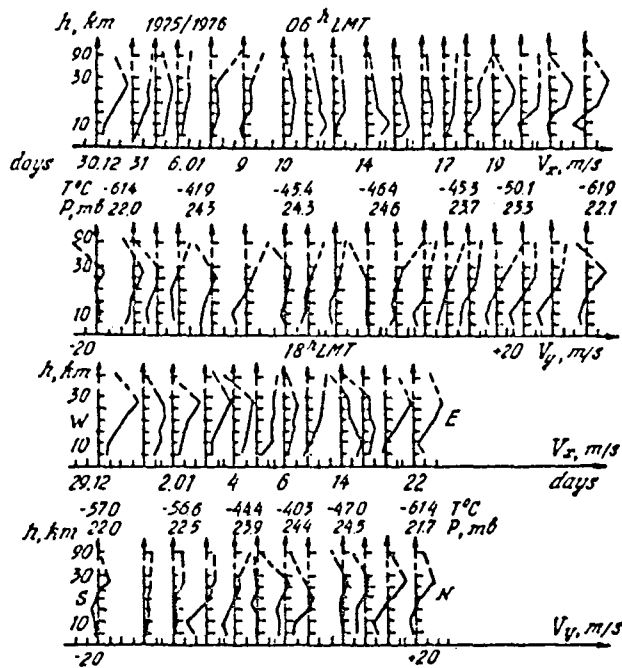 h, km 1975/1976 06 h LMT
90
30
10
days 30.12 31 6.01 9 10 14 17 19 Vx, m/s
T°C -61.4 -41.9 -45.4 -46.4 -45.3 -50.1 -61.9
P, мб 22.0 24.3 24.3 24.6 23.7 23.3 22.1
90
30
10
-20 18 h LMT +20 Vy, m/s
h, km
30 W E
10 Vx, m/s
29.12 2.01 4 6 14 22 days
-57.0 -56.6 -44.4 -40.3 -47.0 -61.4 T°C
h, km 22.0 22.5 23.9 24.4 24.5 21.7 P, мб
90
30
S N
10 Vy, m/s
-20 +20